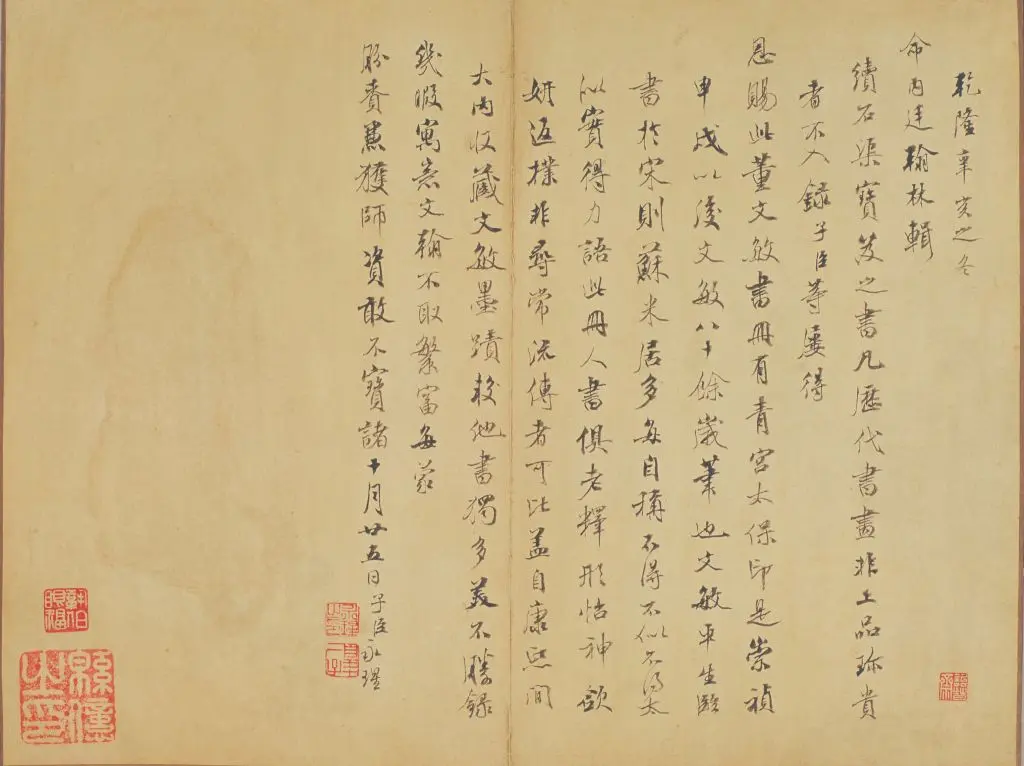 乾隆辛亥之冬
命內廷翰林輯
續石渠寶笈之書凡歷代書畫非上品珍貴
者不入錄子臣等屢得
恩賜此董文敏書冊有青宮太保印是崇禎
申戌以後文敏八十餘歲筆也文敏平生臨
書於宋則蘇米居多每自稱不得不似不得太
似實得力語此冊人書俱老釋形怡神欲
妍返撲非尋常流傳者可比蓋自康熙間
大內收藏文敏墨蹟較他書獨多美不勝錄
幾暇寓意文翰不取繁富每蒙
頒賚薰獲師資敢不寶諸十月廿五日子臣永瑆